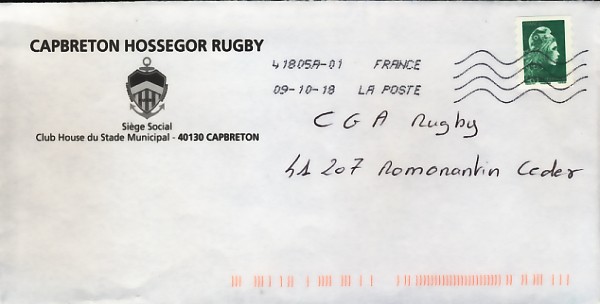 CAPBRETON HOSSEGOR RUGBY
41805A-01 FRANCE
09-10-18 LA POSTE
Siège Social
Club House du Stade Municipal - 40130 CAPBRETON
C G A Rugby
41 207 Romorantin Cedex